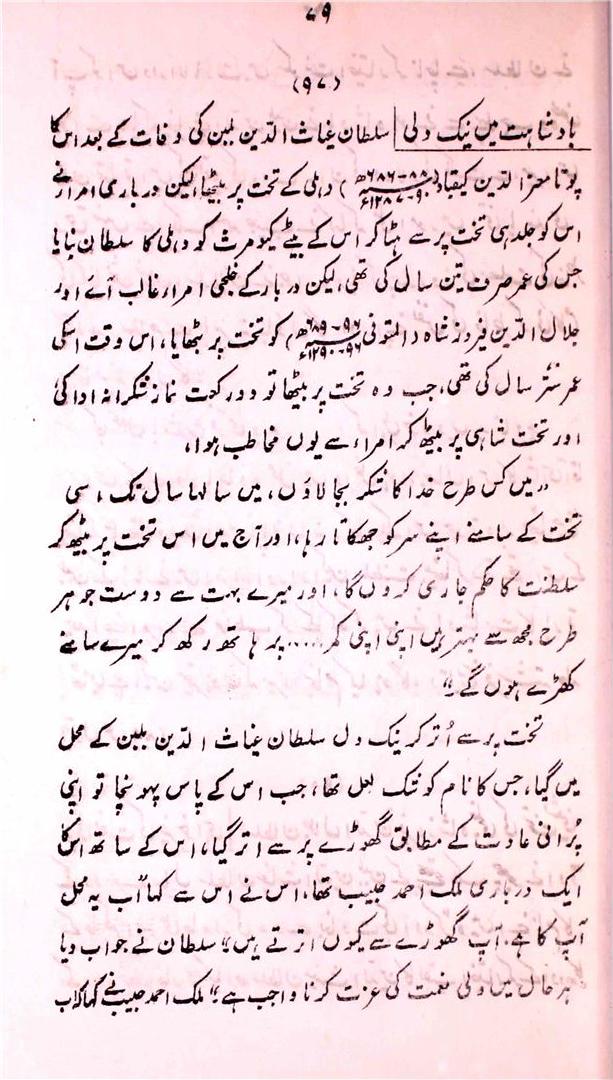 ۷۹
(۹۷)
بادشاہت میں نیک دلی | سلطان غیاث الدین بلبن کی وفات کے بعد اس کا
پوتا معز الدین کیقباد (۸۸-۶۸۶ھ / ۹۰-۱۲۸۷ء) دہلی کے تخت پر بیٹھا، لیکن درباری امراء نے
اس کو جلد ہی تخت پر سے ہٹا کر اس کے بیٹے کیومرث کو دہلی کا سلطان بنایا
جس کی عمر صرف تین سال کی تھی، لیکن دربار کے خلجی امراء غالب آئے اور
جلال الدین فیروز شاہ (المتوفی ۹۶-۶۸۹ھ / ۹۶-۱۲۹۰ء) کو تخت پر بٹھایا، اس وقت اسکی
عمر ستر سال کی تھی، جب وہ تخت پر بیٹھا تو دو رکعت نماز شکرانہ ادا کی
اور تخت شاہی پر بیٹھ کر امراء سے یوں مخاطب ہوا،
”میں کس طرح خدا کا شکر بجالاؤں، میں سالہا سال تک اسی
تخت کے سامنے اپنے سر کو جھکاتا رہا، اور آج میں اس تخت پر بیٹھ کر
سلطنت کا حکم جاری کروں گا، اور میرے بہت سے دوست جو ہر
طرح مجھ سے بہتر ہیں اپنی اپنی کمر..... پر ہاتھ رکھ کر میرے سامنے
کھڑے ہوں گے۔“
تخت پر سے اُتر کر نیک دل سلطان غیاث الدین بلبن کے محل
میں گیا، جس کا نام کوشک لعل تھا، جب اس کے پاس پہونچا تو اپنی
پُرانی عادت کے مطابق گھوڑے پر سے اتر گیا، اس کے ساتھ اس کا
ایک درباری ملک احمد حبیب تھا، اس نے اس سے کہا ”اب یہ محل
آپ کا ہے، آپ گھوڑے سے کیوں اترتے ہیں“ سلطان نے جواب دیا
”ہر حال میں ولی نعمت کی عزت کرنا واجب ہے“ ملک احمد حبیب نے کہا کہ اب